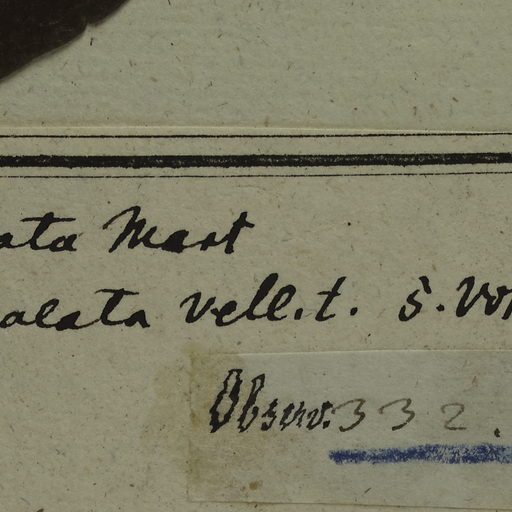 ata Mart
alata Vell. t. S. Vo
Observ. 332.